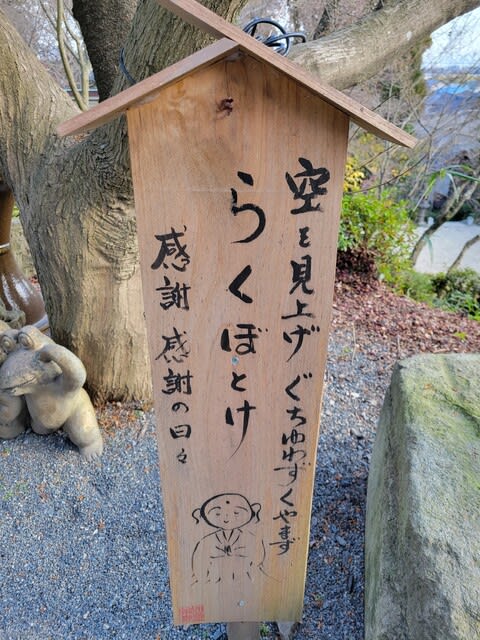 空を見上げ ぐちゆわず くやまず
らくぼとけ
感謝 感謝の日々